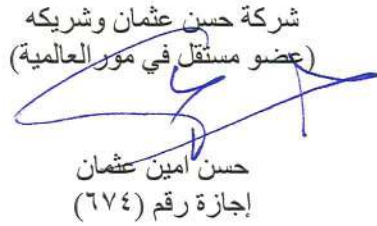 شركة حسن عثمان وشريكه
(عضو مستقل في مور العالمية)
حسن امين عثمان
إجازة رقم (٦٧٤)